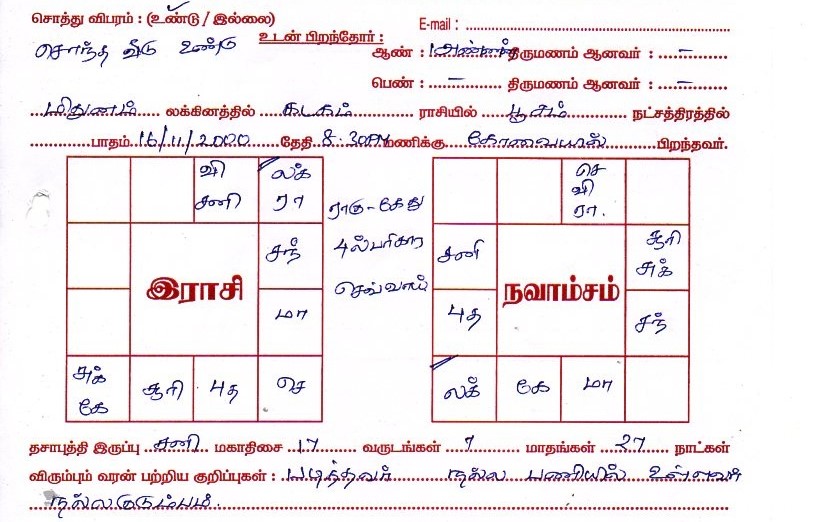 சொத்து விபரம் : (உண்டு / இல்லை) E-mail :
சொந்த வீடு உண்டு உடன் பிறந்தோர் : ஆண் : 1 அண்ணன் திருமணம் ஆனவர் : –
பெண் : – திருமணம் ஆனவர் : –
மிதுனம் லக்கினத்தில் கடகம் ராசியில் பூசம் நட்சத்திரத்தில்
பாதம் 16/11/2000 தேதி 8.30PM மணிக்கு கோவையில் பிறந்தவர்.
வி சனி
லக் ரா
சந்
இராசி
மா
சுக் கே
சூரி
புத
செ
ராகு - கேது
4ல் பரிகார
செவ்வாய்
செ வி ரா.
சனி
சூரி சுக்
நவாம்சம்
புத
சந்
லக்
கே
மா
தசாபுத்தி இருப்பு சனி மகாதிசை 17 வருடங்கள் 7 மாதங்கள் 27 நாட்கள்
விரும்பும் வரன் பற்றிய குறிப்புகள் : படித்தவர் நல்ல பணியில் உள்ளவர்
நல்லகுடும்பம்.